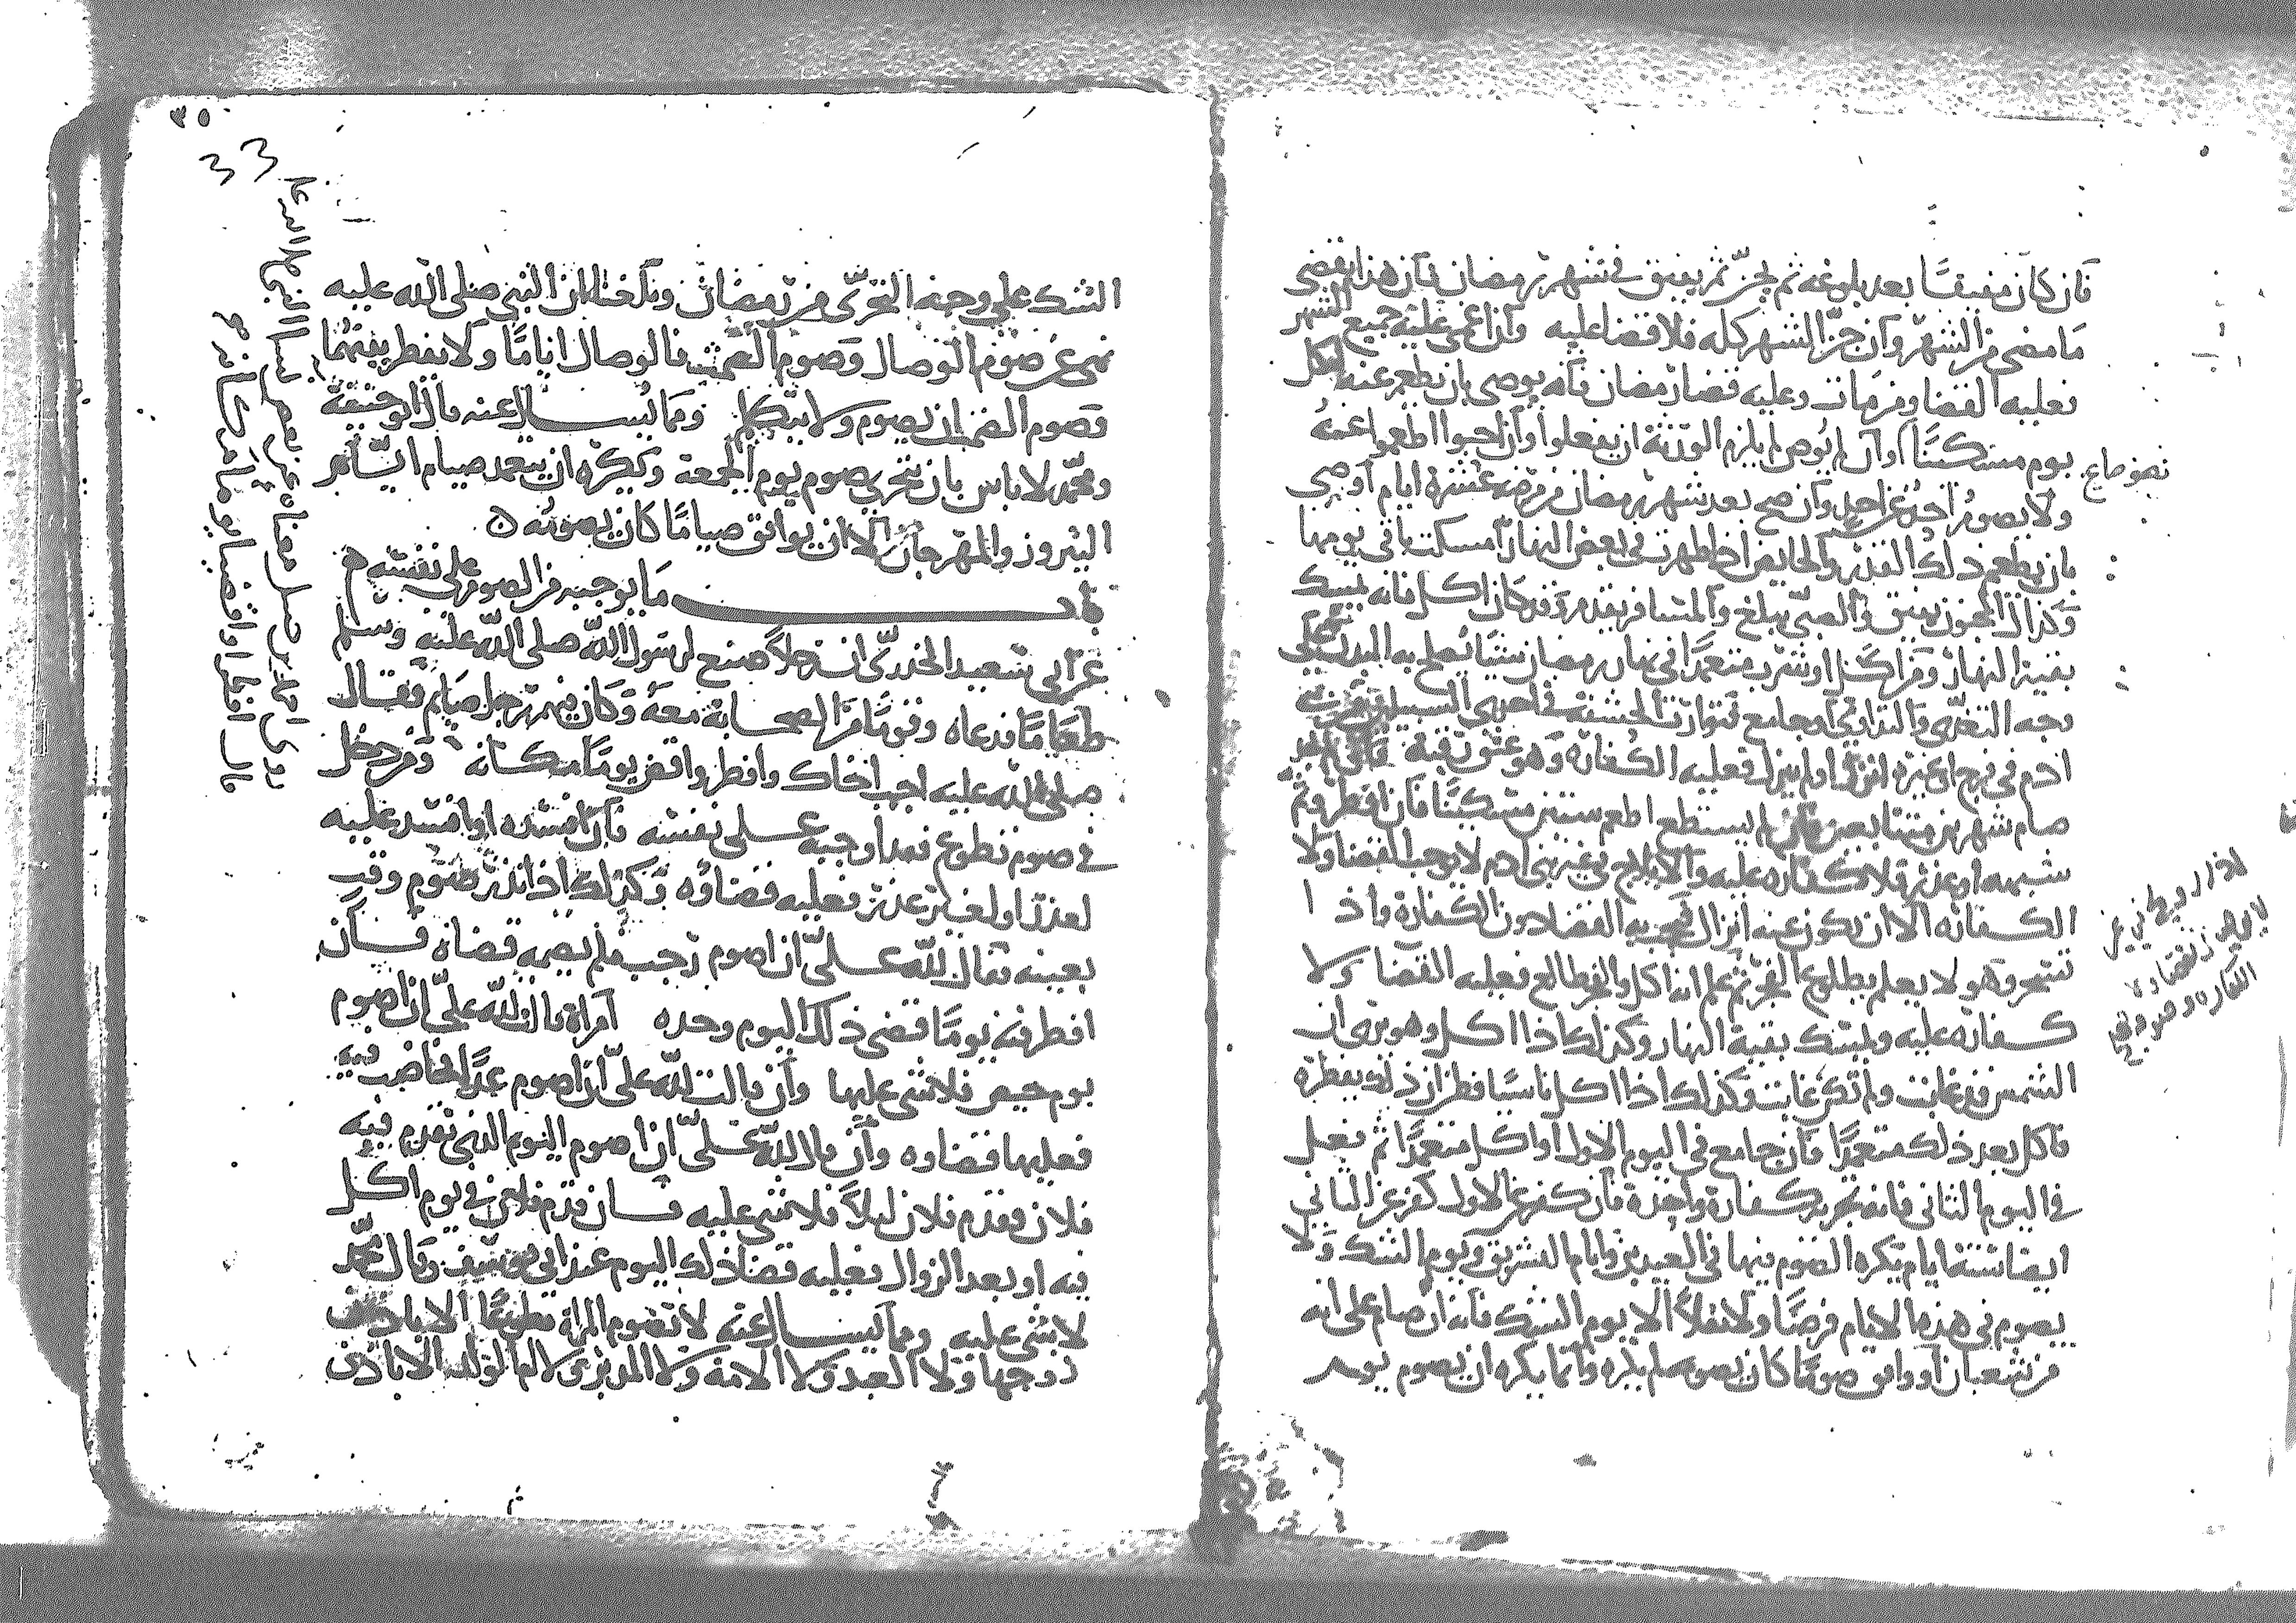 فان كان مفيقا بعد بلوغه ثم يجن ثم يفيق في شهر رمضان فان هذا يقضي
ما مضى من الشهر وان جن الشهر كله فلا قضا عليه وان اغمي عليه جميع الشهر
فعليه القضا ومن مات وعليه قضا رمضان فانه يوصي بان يطعم عنه لكل
يوم مسكينا وان لم يوص لم يلزم الورثة ان يفعلوا وان احبوا اطعموا عنه
نصف صاع
ولا يصوم احد عن احد وان صح بعد شهر رمضان من مرضه عشرة ايام اوصي
بان يطعم ذلك القدر والحايض اذا طهرت في بعض النهار امسكت باقي يومها
وكذلك المجنون يفيق والصبي يبلغ والمسافر يقدم وقد كان اكل فانه يمسك
بقية النهار ومن اكل او شرب متعمدا في نهار رمضان شيئا يصلح به البدن على
وجه التغذي والتداوي او جامع فتوارت الحشفة في احدى السبيلين من
ادمي في فرج او غيره انزل او لم ينزل فعليه الكفارة وهو عتق رقبة فان لم يجد
صام شهرين متتابعين فان لم يستطع اطعم ستين مسكينا فان افطر وثم
شبهه او عذر فلا كفاره عليه والايلاج في غير بني ادم لا يوجب القضا ولا
الكفاره الا ان يكون عنه انزال فيجب به القضا دون الكفارة واذا
تسحر وهو لا يعلم بطلوع الفجر ثم علم انه اكل والفجر طالع فعليه القضا ولا
كفاره عليه ويمسك بقية النهار وكذلك اذا اكل وهو يرى ان
الشمس قد غابت ولم تكن غابت وكذلك اذا اكل ناسيا فظن ان ذلك يفطره
فاكل بعد ذلك متعمدا فان جامع في اليوم الاول او اكل متعمدا ثم فعل
في اليوم الثاني فانه تجزيه كفارة واحدة فان كفر عن الاول كفر عن الثاني
ايضا ستة ايام يكره الصوم فيها في العيدين وايام التشريق ويوم الشك ولا
يصوم في هذه الايام فرضا ولا نفلا الا يوم الشك فانه ان صام على انه
من شعبان او وافق صوما كان يصومه لم يكره وانما يكره ان يصوم يوم
الشك على وجه التحري من رمضان وبلغنا ان النبي صلى الله عليه
نهى عن صوم الوصال وصوم الصمت فالوصال اياما ولا يفطر بينهما
وصوم الصمت ان يصوم ولا يتكلم ومما يسال عنه قال ابو حنيفة
ومحمد لا باس بان يتحرى صوم يوم الجمعة ويكره ان يتعمد صيام ايام
النيروز والمهرجان الا ان يوافق صياما كان يصومه
باب ما يوجبه من الصوم على نفسه
عن ابي سعيد الخدري ان رجلا صنع لرسول الله صلى الله عليه وسلم
طعاما فدعاه وقوما من الصحابة معه وكان فيهم رجل صايم فقال
صلى الله عليه اجب اخاك وافطر واقض يوما مكانه ومن دخل
في صوم تطوع فقد اوجبه على نفسه فان افسده او افسد عليه
لعذر او لغير عذر فعليه قضاوه وكذلك اذا نذر صوم وقت
بعينه فقال لله علي ان اصوم رجب فلم يصمه قضاه فان
افطر منه يوما قضى ذلك اليوم وحده امراة قالت لله علي ان اصوم
يوم حيضي فلا شي عليها وان قالت لله علي ان اصوم غدا فحاضت فيه
فعليها قضاوه وان قال لله علي ان اصوم اليوم الذي يقدم فيه
فلان فقدم فلان ليلا فلا شي عليه فان قدم فلان في يوم اكل
فيه او بعد الزوال فعليه قضا ذلك اليوم عند ابي يوسف وقال محمد
لا شي عليه ومما يسال عنه لا تصوم المراة تطوعا الا باذن
زوجها ولا العبد ولا الامة ولا المدبر ولا ام الولد الا باذن